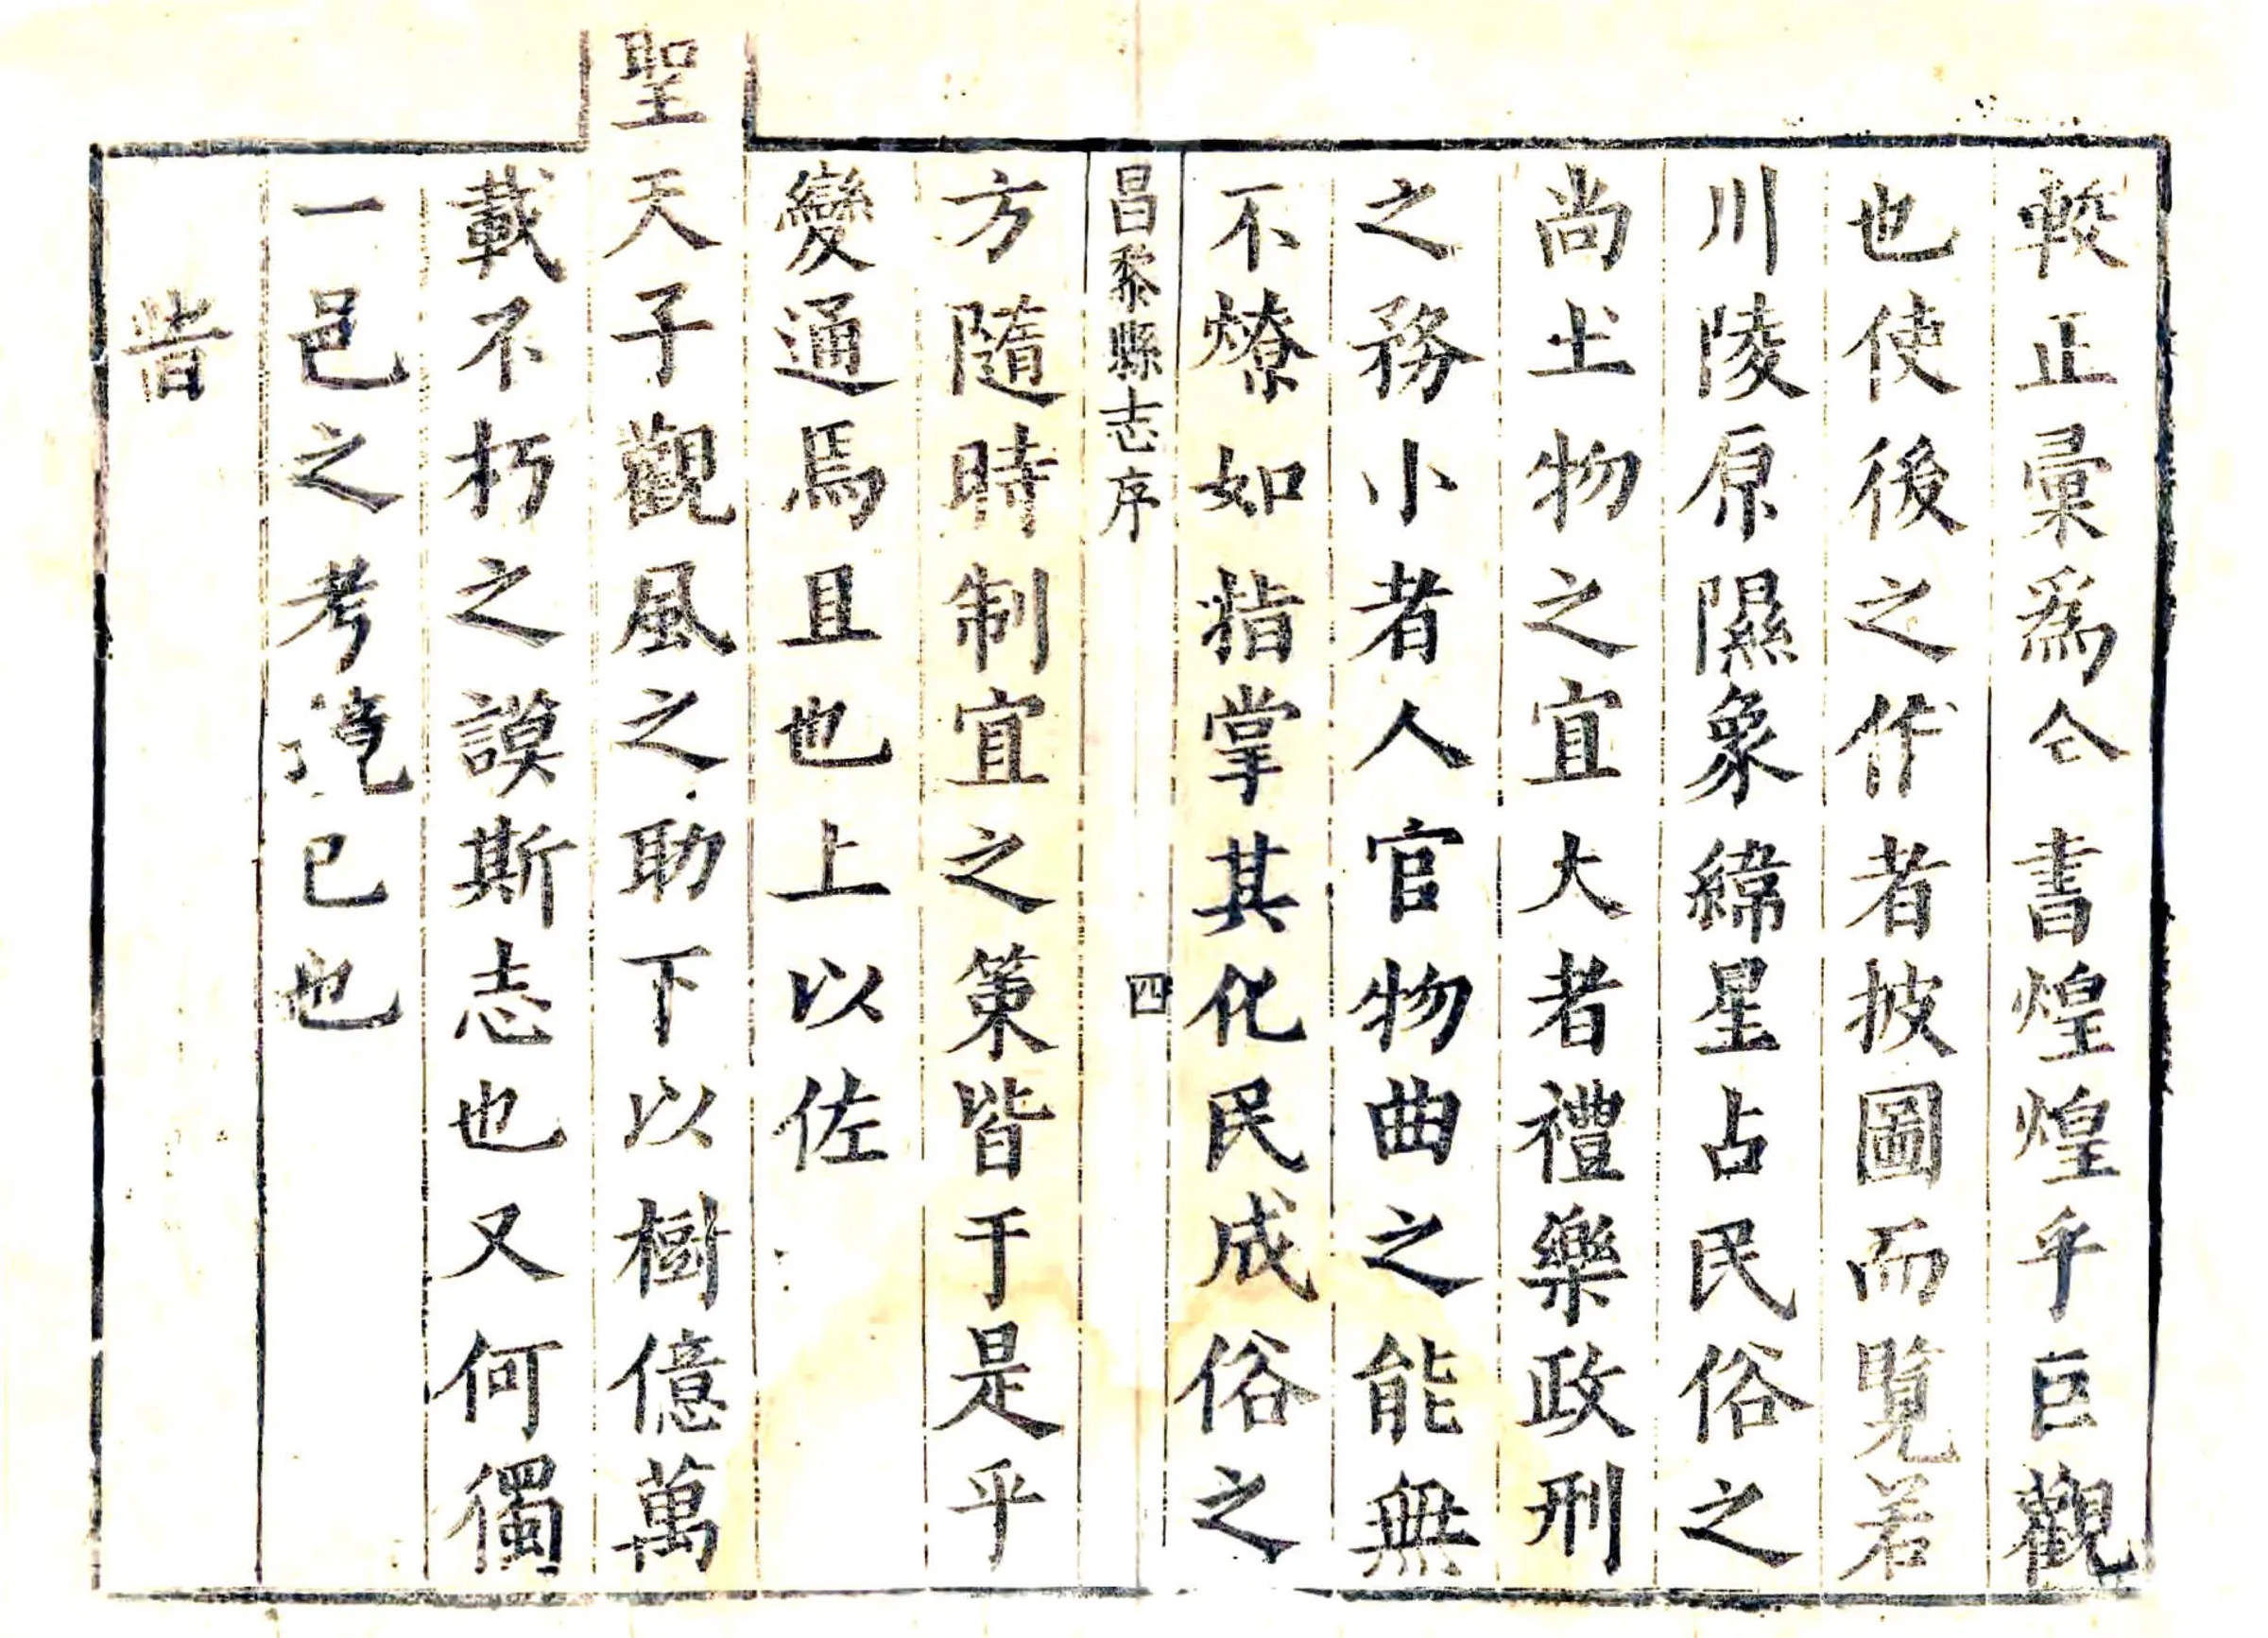 較正彙爲仝書煌煌乎巨觀
也使後之作者披圖而覧若
川陵原隰象緯星占民俗之
尚土物之宜大者禮樂政刑
之務小者人官物曲之能無
不燎如指掌其化民成俗之
昌黎縣志序
四
方隨時制宜之策皆于是乎
變通焉且也上以佐
聖天子觀風之助下以樹億萬
載不朽之謨斯志也又何獨
一邑之考鏡已也
旹